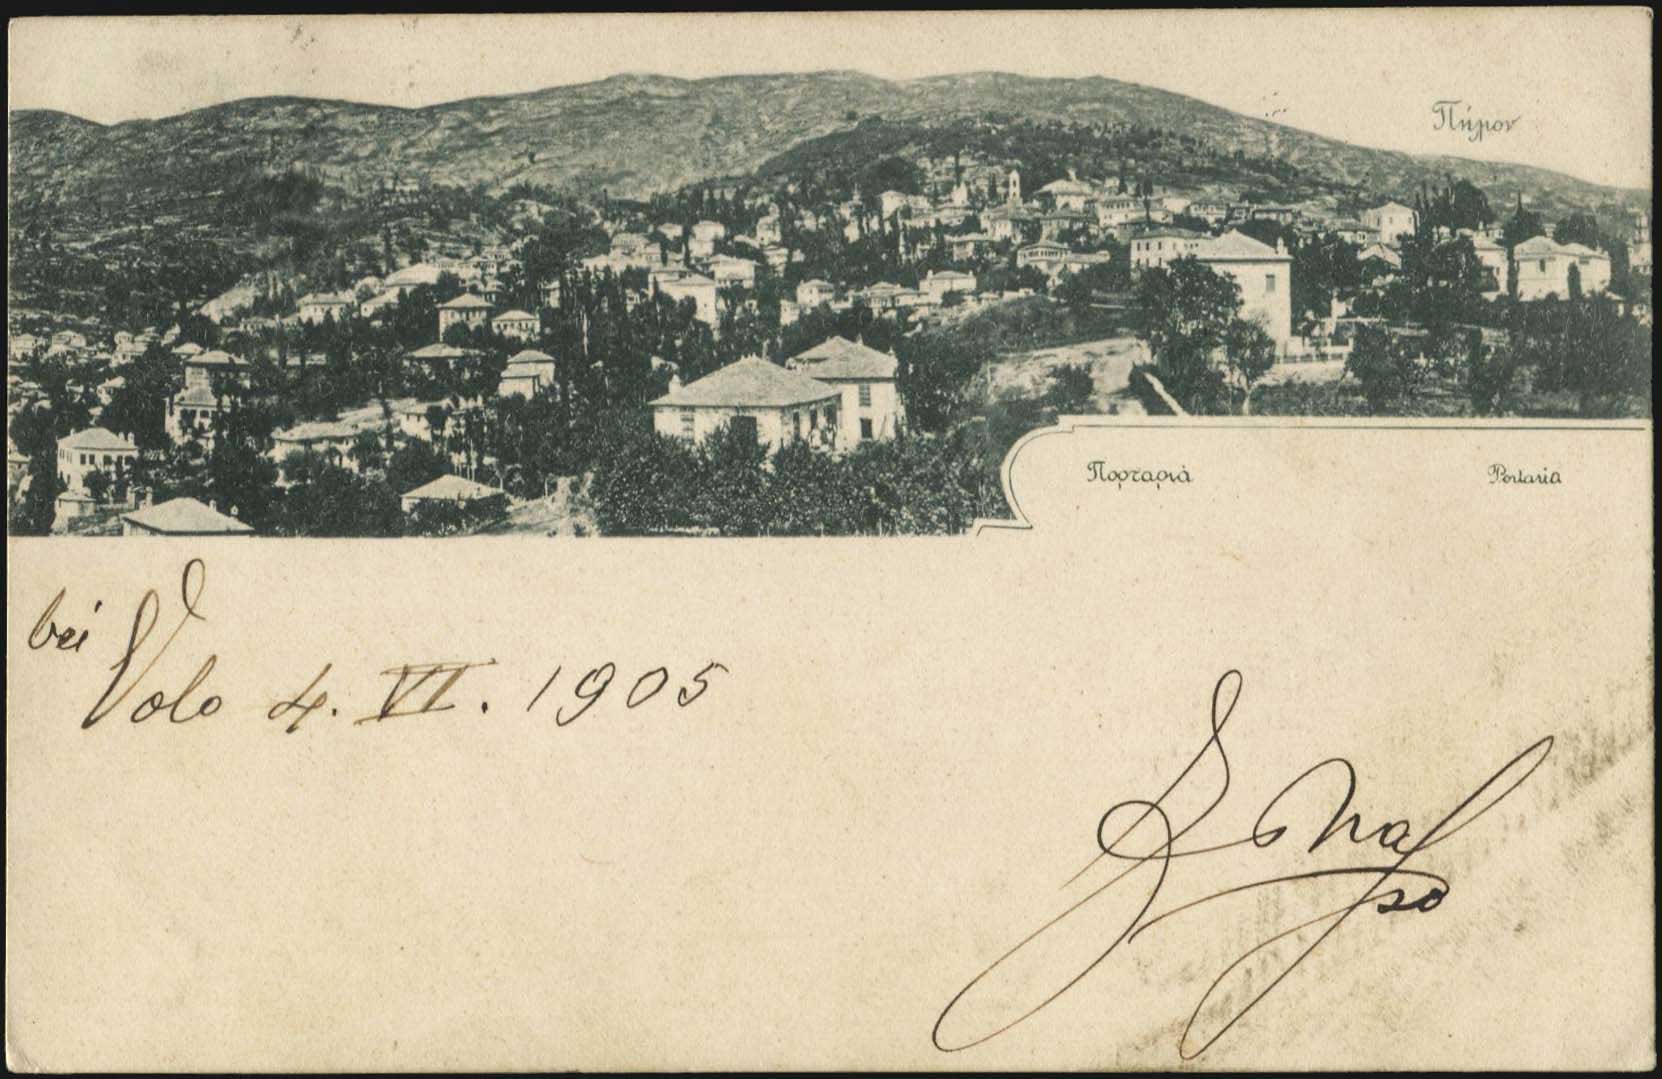 Πήλιον
Πορταριά Portaria
bei
Volo 4. VI. 1905